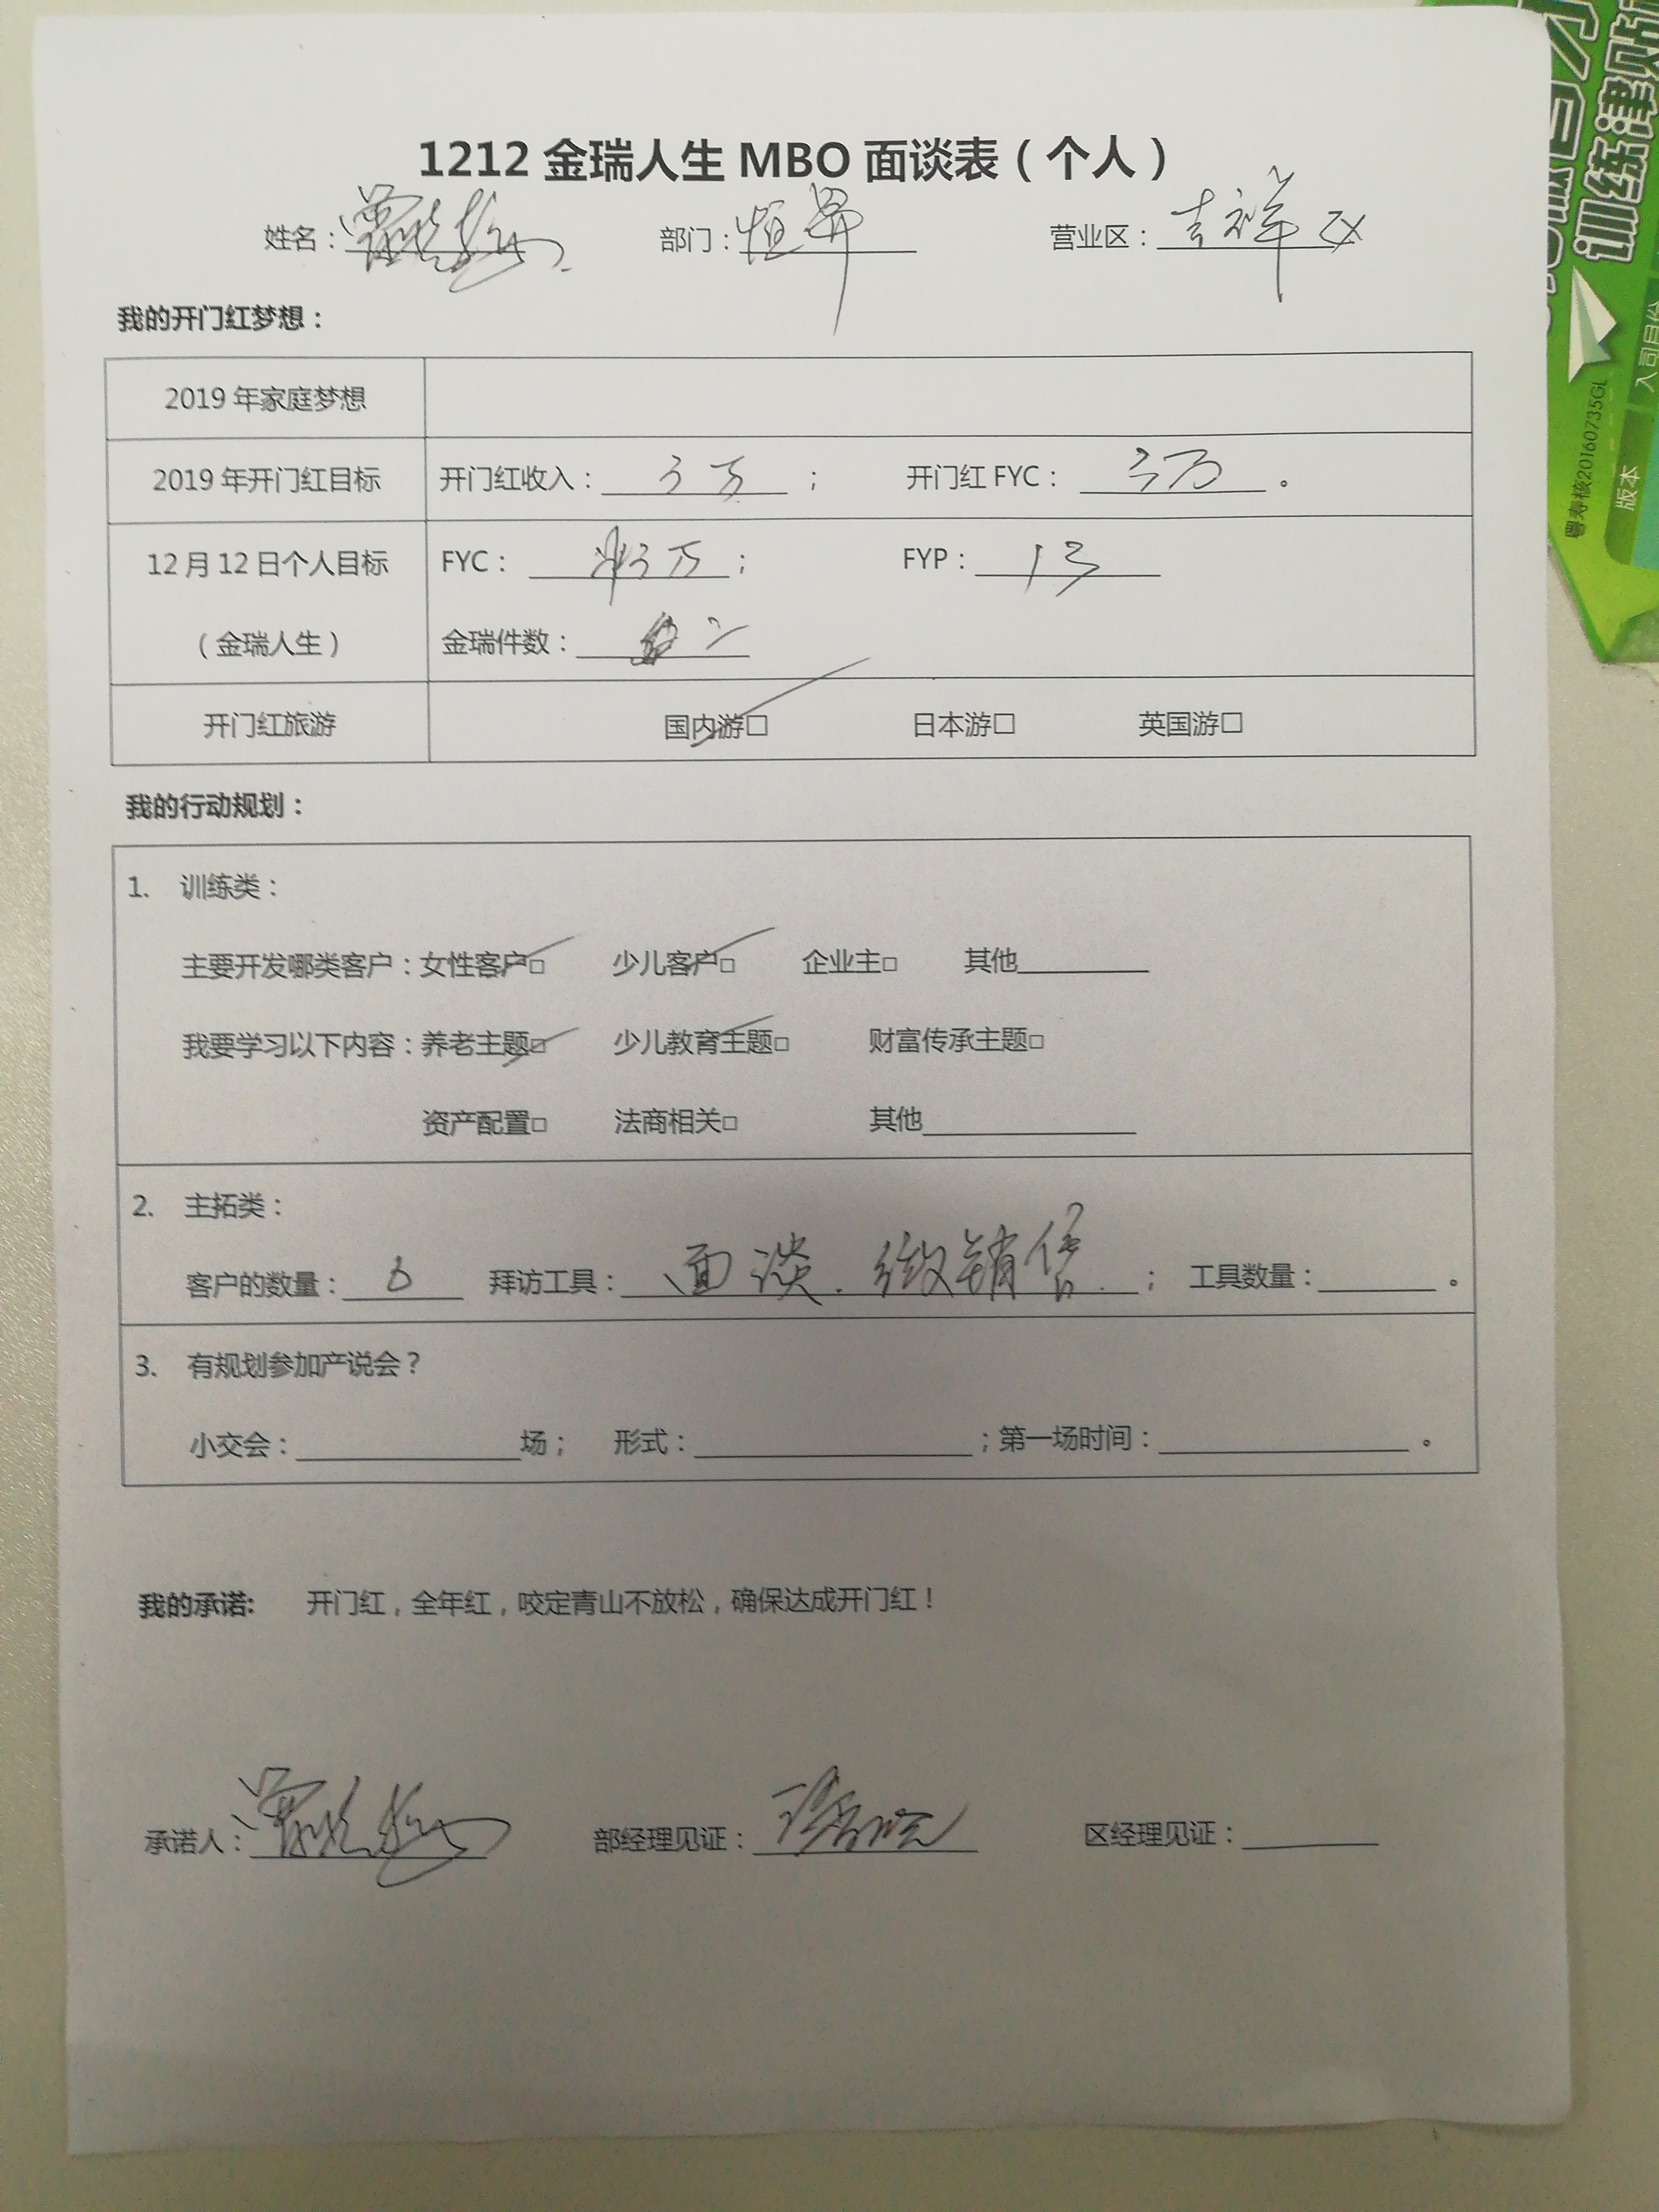 1212 金瑞人生 MBO 面谈表（个人）
姓名： 部门：恒昇 营业区：吉祥区
我的开门红梦想：
2019 年家庭梦想
2019 年开门红目标 开门红收入：3万； 开门红 FYC：3万。
12 月 12 日个人目标 FYC：3万； FYP：13
（金瑞人生） 金瑞件数：
开门红旅游 国内游□ 日本游□ 英国游□
我的行动规划：
1. 训练类：
主要开发哪类客户：女性客户□ 少儿客户□ 企业主□ 其他
我要学习以下内容：养老主题□ 少儿教育主题□ 财富传承主题□
资产配置□ 法商相关□ 其他
2. 主拓类：
客户的数量：6 拜访工具：面谈.微销售.； 工具数量：。
3. 有规划参加产说会？
小交会：场； 形式：；第一场时间：。
我的承诺: 开门红，全年红，咬定青山不放松，确保达成开门红！
承诺人： 部经理见证： 区经理见证：
训练津贴
粤寿核20160735GL
版本
入司月份